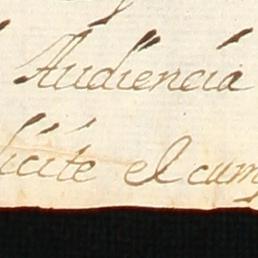 Audiencia
licite el cum